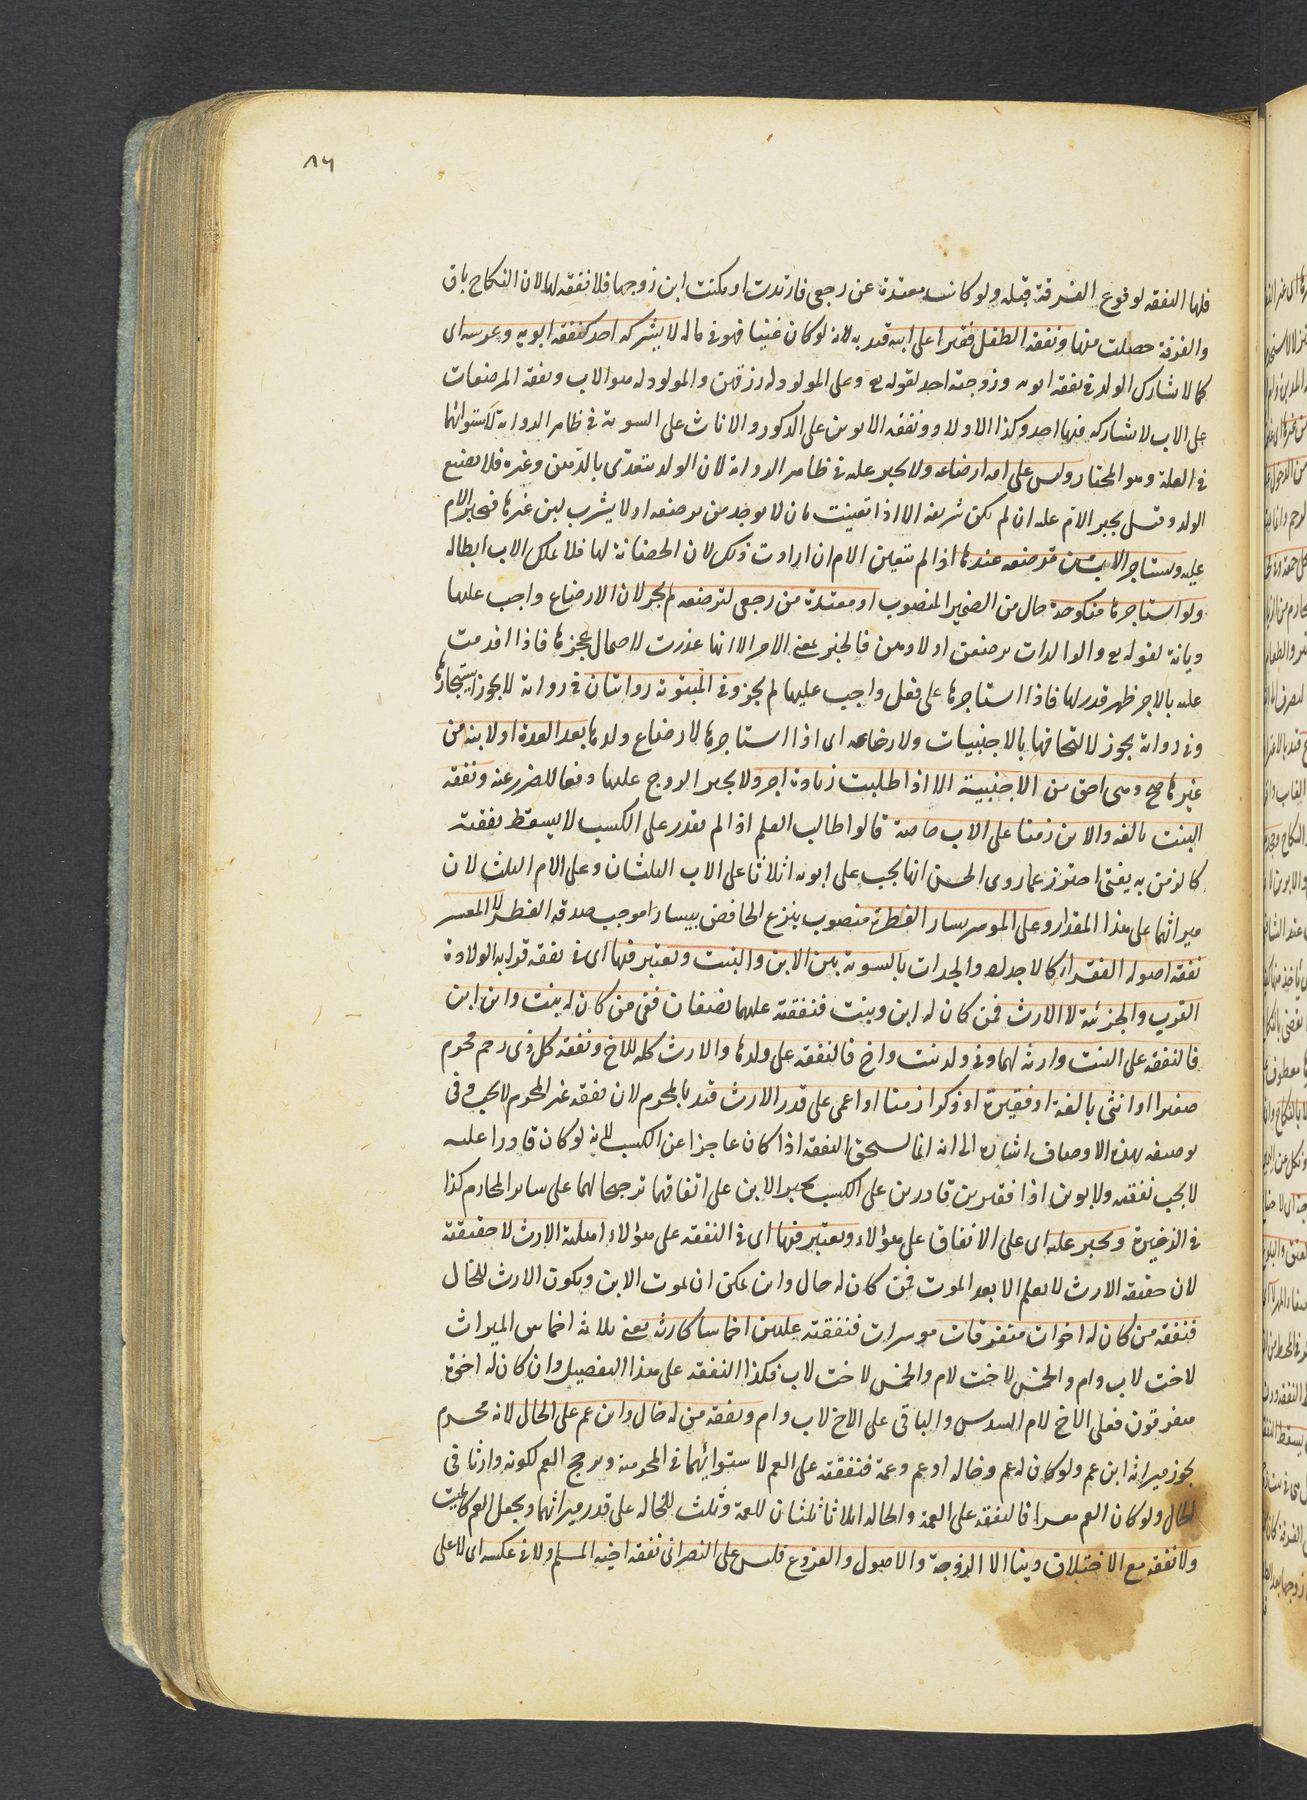 ٨٦
فلها النفقة لوقوع الفرقة قبله ولو كانت معتدة عن رجعي فارتدت او مكنت ابن زوجها فلا نفقة لها لان النكاح باق
والفرقة حصلت منها ونفقة الطفل فقيرا على ابيه قيد به لانه لو كان غنيا فهو في ماله لا يشركه احد كنفقة ابويه وعرسه اي
كما لا يشارك الولد في نفقة ابويه وزوجته احد لقوله تع وعلى المولود له رزقهن والمولود له هو الاب ونفقة المرضعات
على الاب لا يشاركه فيها احد وكذا الاولاد ونفقة الابوين على الذكور والاناث على السوية في ظاهر الرواية لاستوائهما
في العلة وهو المختار وليس على امه ارضاعه ولا يجبر عليه في ظاهر الرواية لان الولد يتغذى بالدهن وغيره فلا يضيع
الولد وقيل يجبر الام عليه ان لم تكن شريفة الا اذا تعينت بان لا يوجد من يرضعه او لا يشرب لبن غيرها فتجبر الام
عليه ويستاجر الاب من ترضعه عندها اذا لم يتعين الام ان ارادت ذلك لان الحضانة لها فلا يملك الاب ابطاله
ولو استاجرها منكوحة حال من الضمير المنصوب او معتدة من رجعي لترضعه لم يجز لان الارضاع واجب عليها
ديانة لقوله تع والوالدات يرضعن اولادهن فالخبر بمعنى الامر الا انها عذرت لاحتمال عجزها فاذا اقدمت
عليه بالاجر ظهر قدرتها فاذا استاجرها على فعل واجب عليها لم يجز وفي المبتوتة روايتان في رواية لا يجوز استيجارها
وفي رواية يجوز لالتحاقها بالاجنبيات ولارضاعه اي اذا استاجرها لارضاع ولدها بعد العدة او لابنه من
غيرها صح وهي احق من الاجنبية الا اذا طلبت زيادة اجر ولا يجبر الزوج عليها دفعا للضرر عنه ونفقة
البنت بالغة والابن زمنا على الاب خاصة قالوا طالب العلم اذا لم يقدر على الكسب لا يسقط نفقته
كالزمن به يفتى احترز عما روى الحسن انها يجب على ابويه اثلاثا على الاب الثلثان وعلى الام الثلث لان
ميراثهما على هذا المقدار وعلى الموسر يسار الفطرة منصوب بنزع الخافض بيسار موجب صدقة الفطر لا المعسر
نفقة اصوله الفقراء كالاجداد والجدات بالسوية بين الابن والبنت ويعتبر فيها اي في نفقة قرابة الولادة
القرب والجزئية لا الارث فمن كان له ابن وبنت فنفقته عليهما نصفان ففي من كان له بنت وابن ابن
فالنفقة على البنت وارثه لهما وفي ولد بنت واخ فالنفقة على ولدها والارث كله للاخ ونفقة كل ذي رحم محرم
صغيرا او انثى بالغة او فقيرة او ذكرا زمنا او اعمى على قدر الارث قيد بالمحرم لان نفقة غير المحرم لا يجب وفي
توصيفه بهذه الاوصاف اشارة الى انه انما يستحق النفقة اذا كان عاجزا عن الكسب لانه لو كان قادرا عليه
لا يجب نفقته ولابوين اذا فقيرين قادرين على الكسب يجبر الابن على انفاقهما ترجيحا لهما على سائر المحارم كذا
في الذخيرة ويجبر عليه اي على الانفاق على هؤلاء ويعتبر فيها اي في النفقة على هؤلاء اهلية الارث لا حقيقته
لان حقيقة الارث لا يعلم الا بعد الموت فمن كان له خال وابن يمكن ان يموت الابن ويكون الارث للخال
فنفقة من كان له اخوات متفرقات موسرات فنفقته عليهن اخماسا كارثه يعني ثلاثة اخماس الميراث
لاخت لاب وام والخمس لاخت لام والخمس لاخت لاب فكذا النفقة على هذا التفصيل وان كان له اخوة
متفرقون فعلى الاخ لام السدس والباقي على الاخ لاب وام ونفقة من له خال وابن عم على الخال لانه محرم
يجوز ميراثه ابن عم ولو كان له عم وخاله او عم وعمة فنفقته على العم لاستوائهما في المحرمية ويرجح العم لكونه وارثا في
الحال ولو كان العم معسرا فالنفقة على العمة والخالة اثلاثا ثلثان للعمة وثلث للخالة على قدر ميراثهما ويجعل العم كالميت
ولا نفقة مع الاختلاف دينا الا الزوجة والاصول والفروع فليس على النصراني نفقة اخيه المسلم ولا في عكسه اي لا على